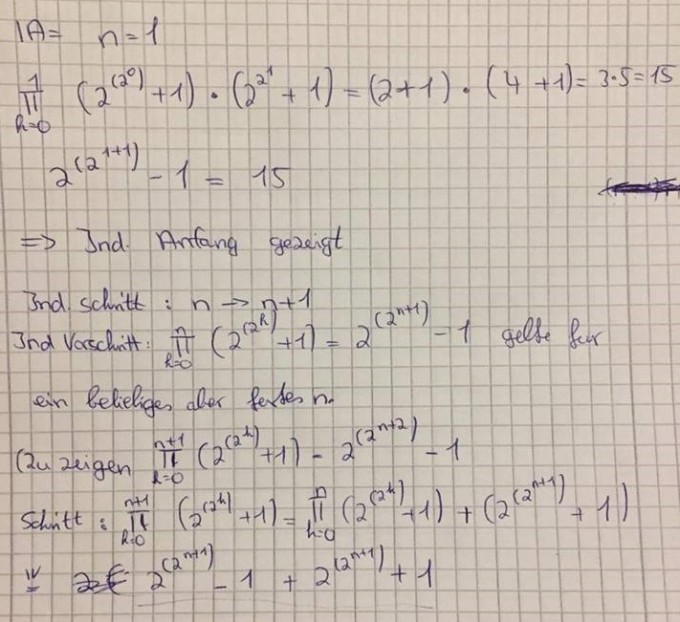 IA= n=1
1∏k=0 (2^(2^0)+1)·(2^2^1+1)=(2+1)·(4+1)=3·5=15
2^(2^1+1)-1=15
=> Ind. Anfang gezeigt
Ind. schritt: n→n+1
Ind Vorschritt: n∏k=0 (2^(2^k)+1)=2^(2^n+1)-1 gelte fur
ein beliebiges aber festes n.
(Zu zeigen n+1∏k=0 (2^(2^k)+1)-2^(2^n+2)-1
Schritt: n+1∏k=0 (2^(2^k)+1)=n∏k=0 (2^(2^k)+1)+(2^(2^n+1)+1)
IV= 2^(2^n+1)-1+2^(2^n+1)+1